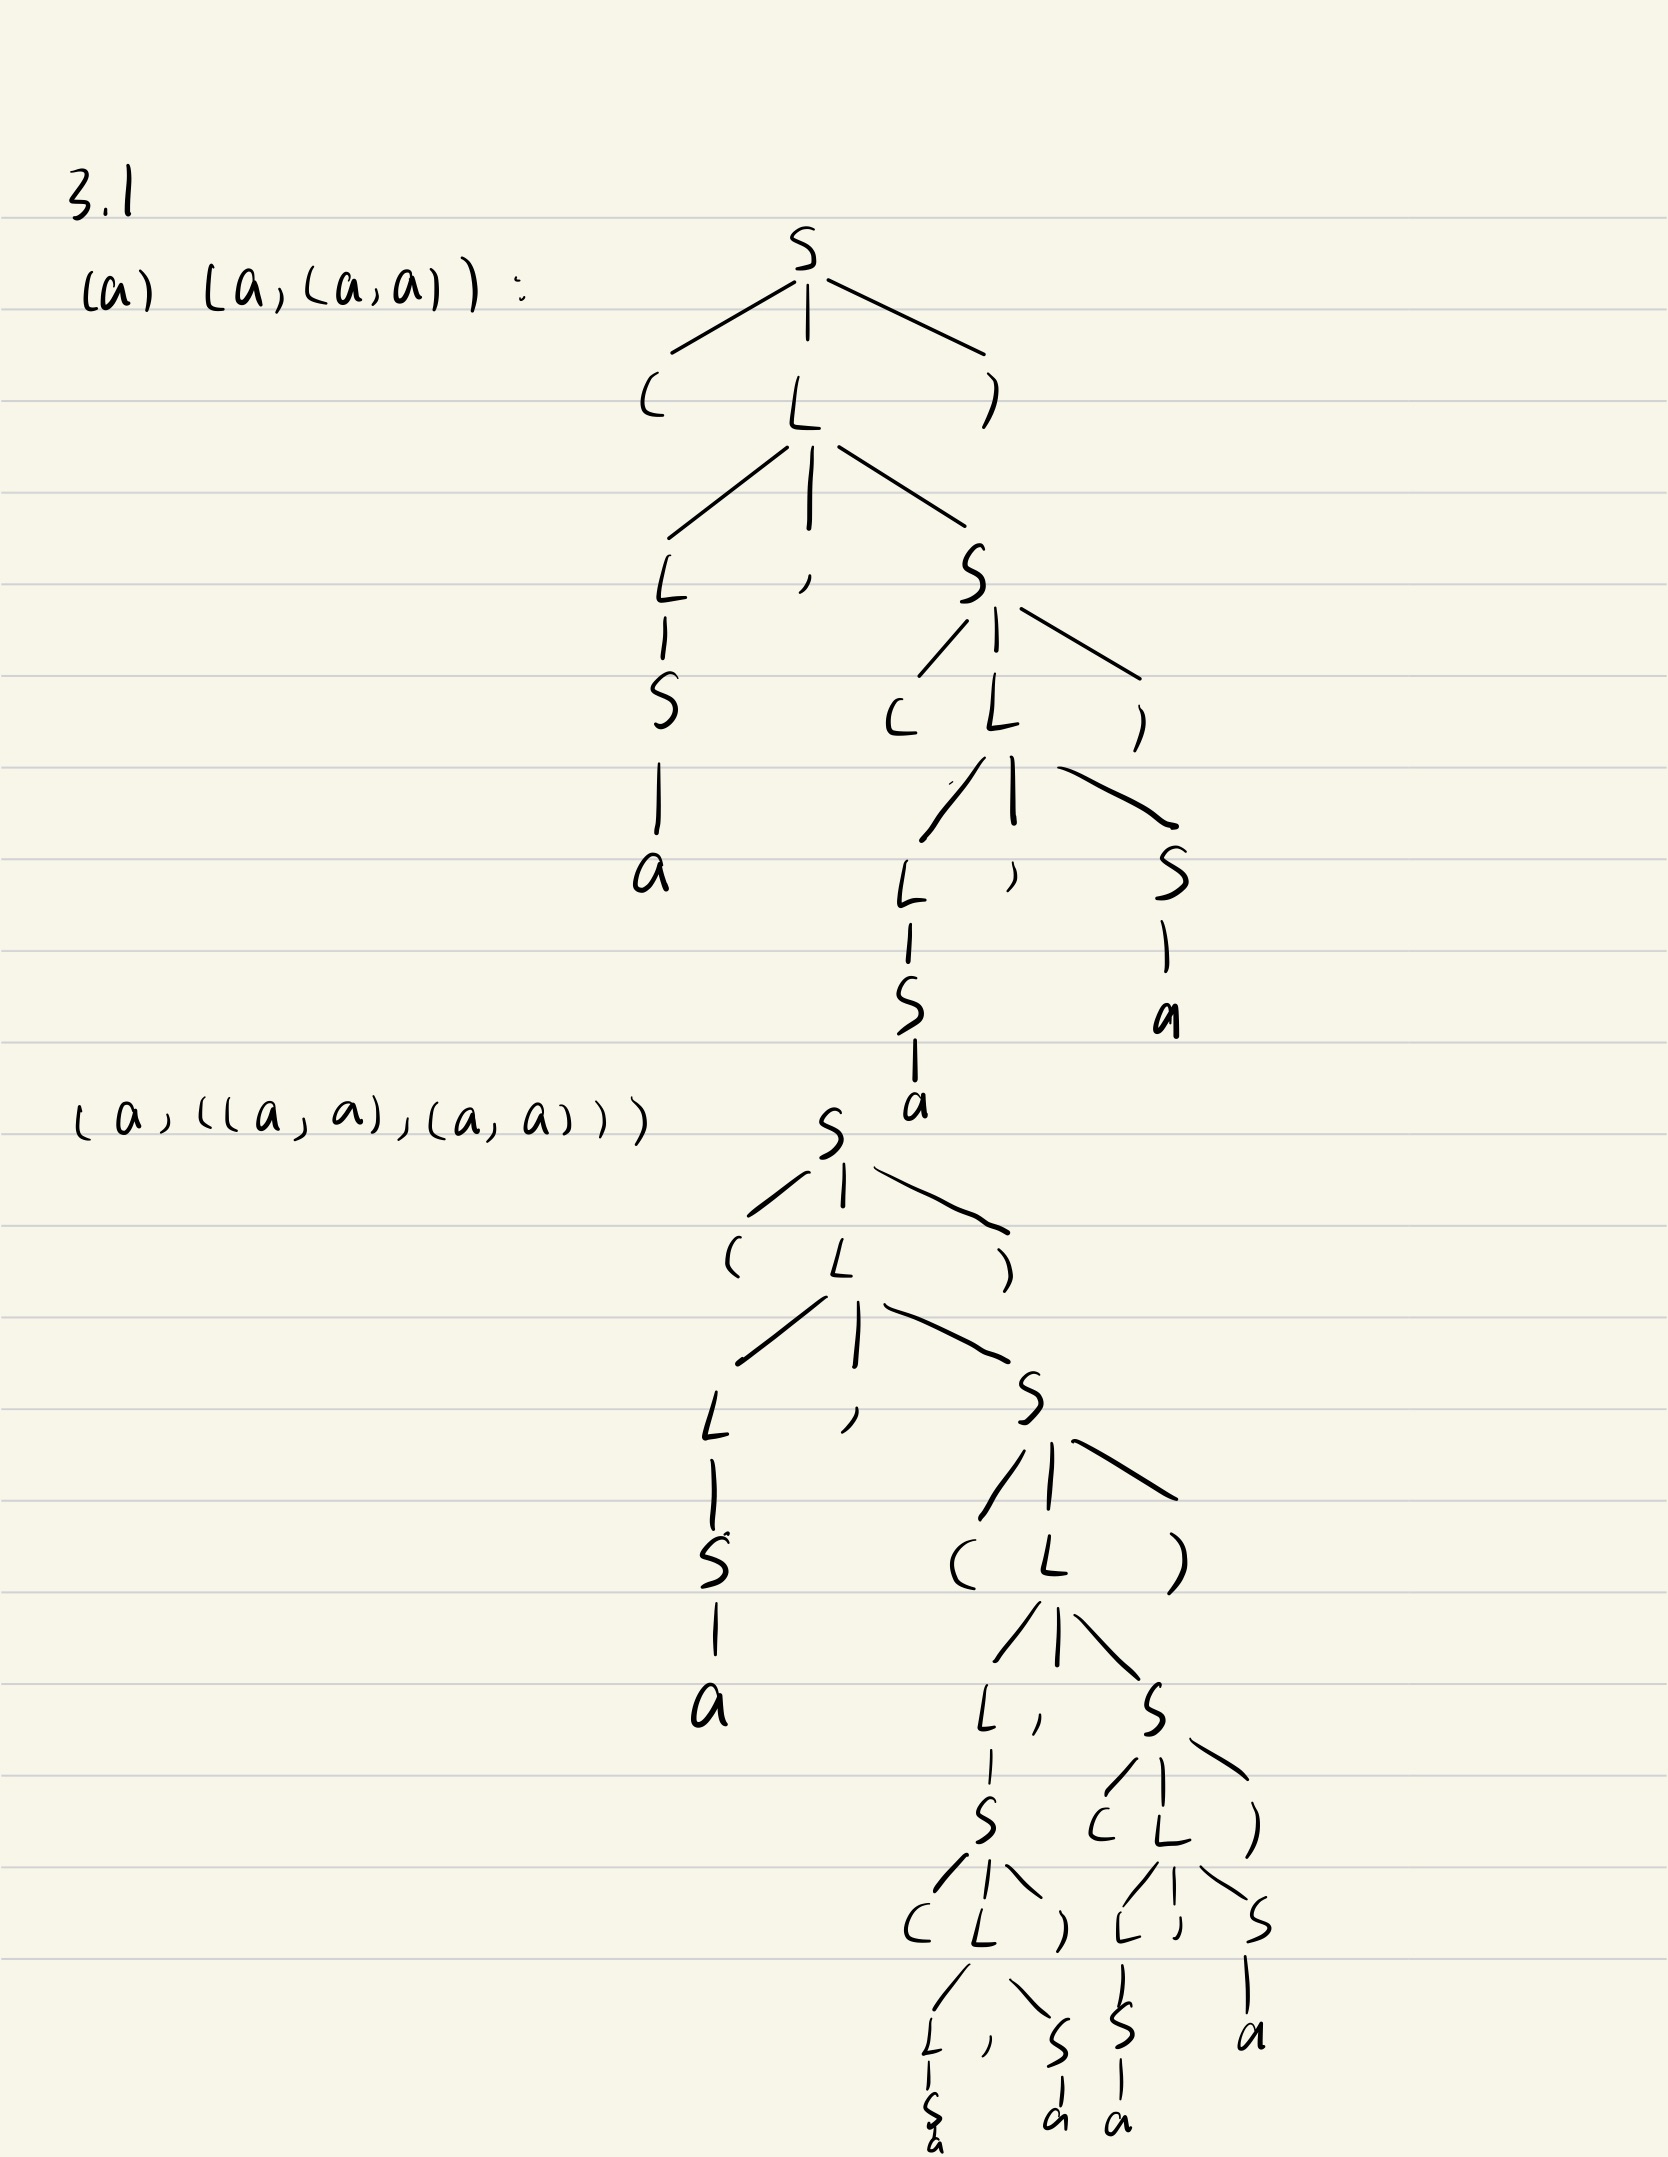 3.1
S
(a) (a,(a,a)) :
( L )
L , S
S ( L )
a L , S
S a
a
(a,((a,a),(a,a)))
S
( L )
L , S
S ( L )
a L , S
S ( L )
( L ) L , S
L , S S a
S a a
a